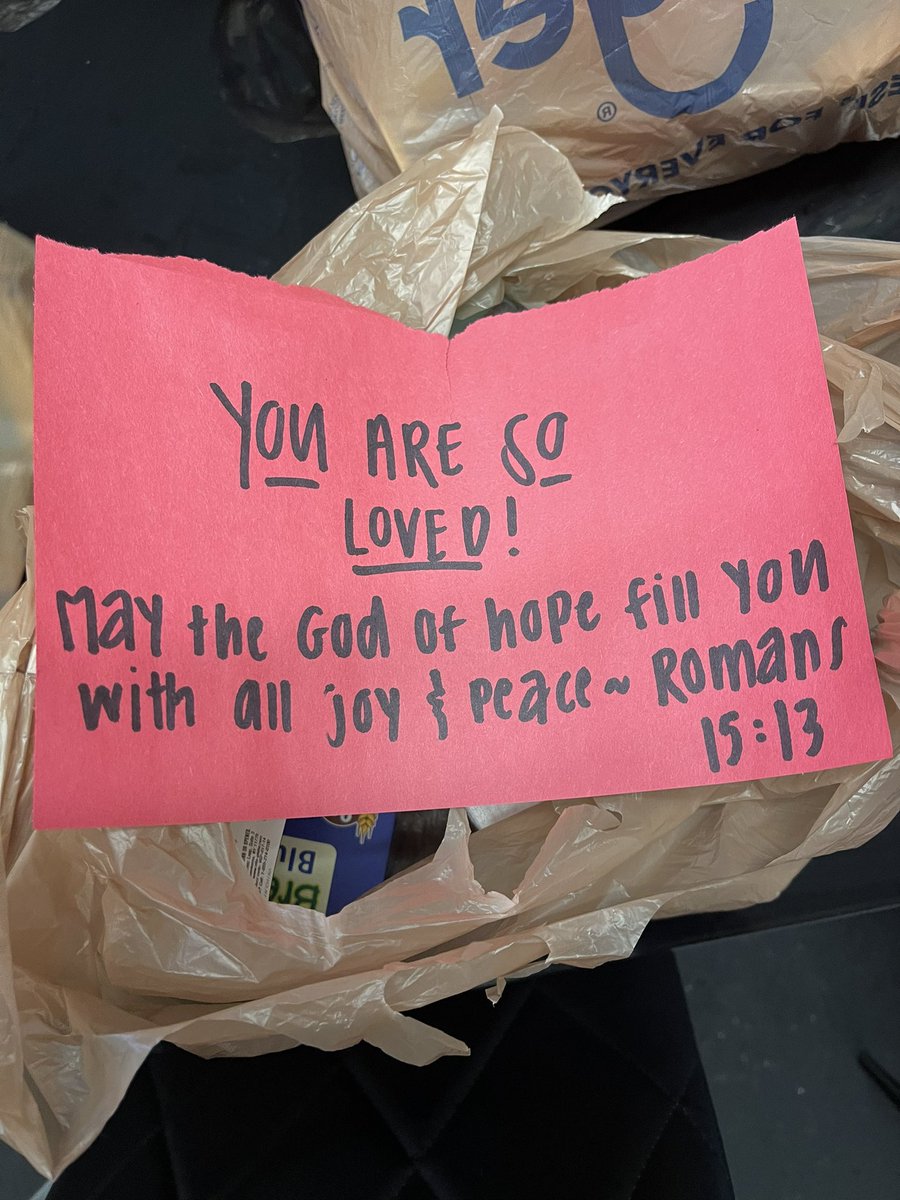 ® 
FOR EVERYO
YOU ARE SO
LOVED!
May the God of hope fill you
with all joy & peace~ Romans
15:13
Blu
Br